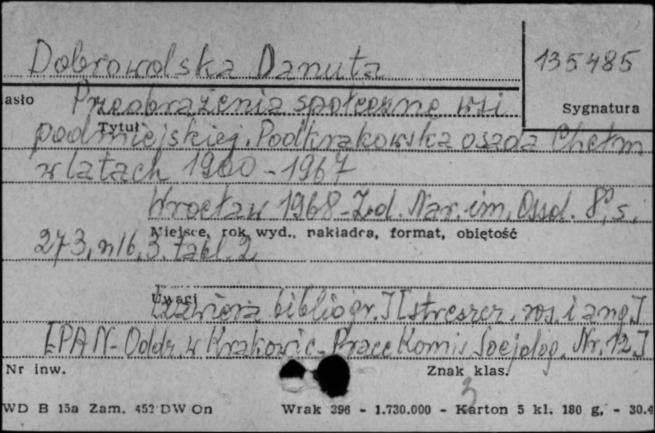 Dobrowolska Danuta
135485
asło
Przeobrażenia społeczne wsi
Sygnatura
Tytuł
podmiejskiej. Podkrakowska osada Chełm
w latach 1900-1967
Wrocław 1968 - Zd. Nar. im. Ossol. 8°, s.
Miejsce, rok wyd., nakładca, format, objętość
273, nlb, 3. tabl. 2
Uwagi
[Zawiera bibliogr.] [streszcz. ros. i ang.]
[PAN - Oddz. w Krakowie - Prace Komis. Socjolog. Nr. 12.]
Nr inw.
Znak klas.
3
WD B 15a Zam. 452 DW On
Wrak 396 - 1.730.000 - Karton 5 kl. 180 g, - 30.4